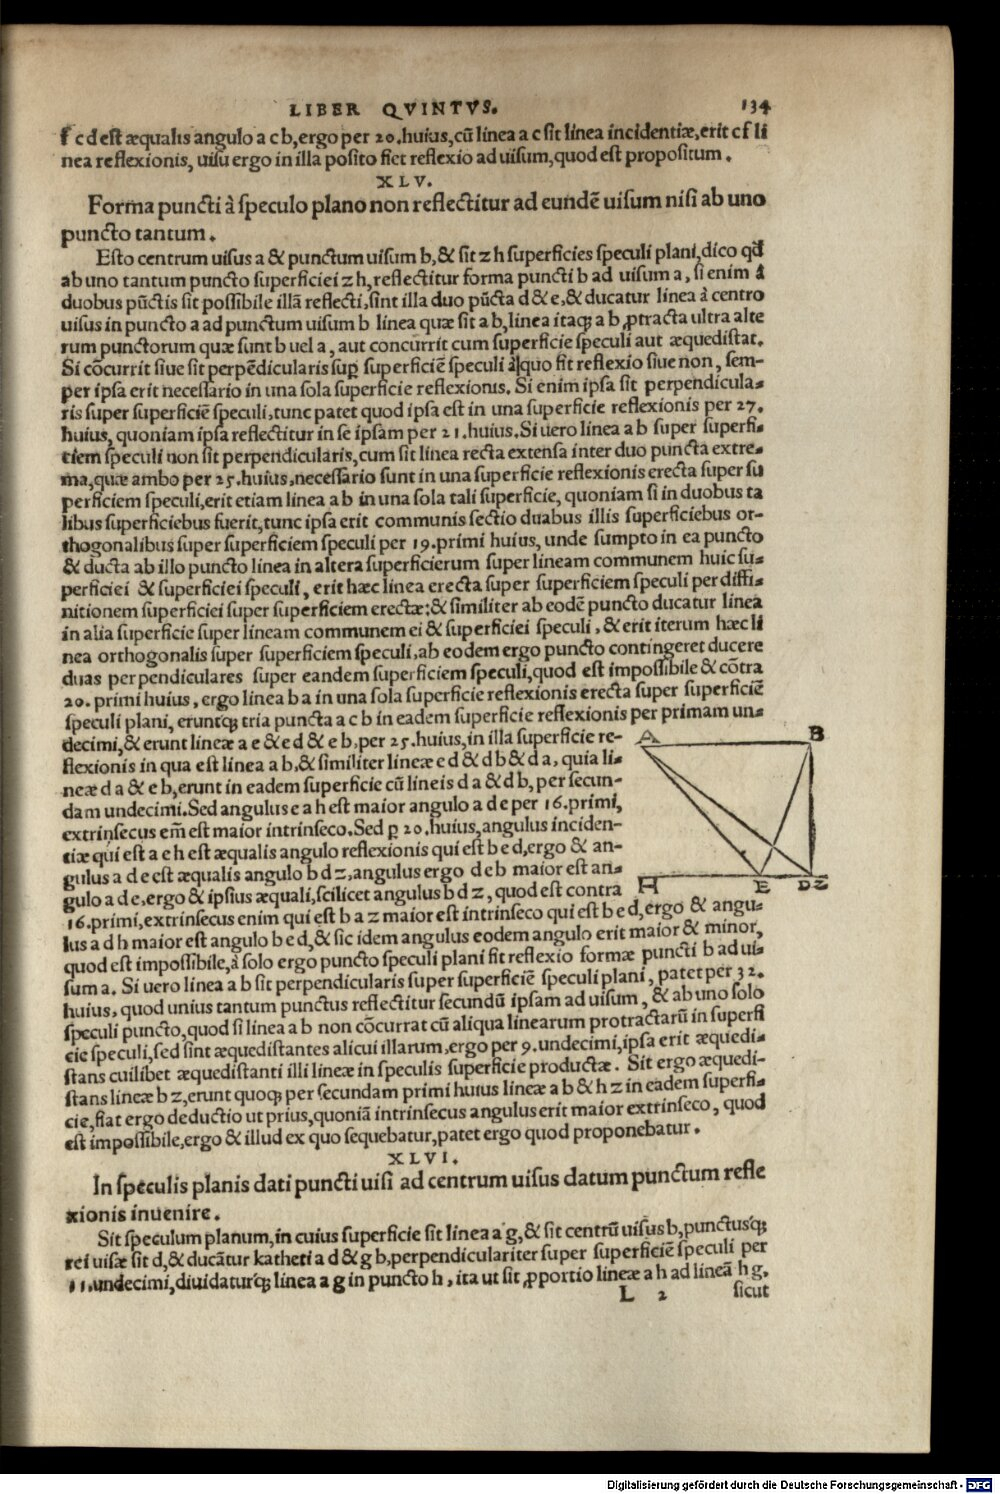 LIBER QVINTVS. 134
f c d est æqualis angulo a c b, ergo per 20. huius, cũ linea a c sit linea incidentiæ, erit c f li
nea reflexionis, uisu ergo in illa posito fiet reflexio ad uisum, quod est propositum.
XLV.
Forma puncti à speculo plano non reflectitur ad eundẽ uisum nisi ab uno
puncto tantum.
Esto centrum uisus a & punctum uisum b, & sit z h superficies speculi plani, dico qđ
ab uno tantum puncto superficiei z h, reflectitur forma puncti b ad uisum a, si enim á
duobus pũctis sit possibile illã reflecti, sint illa duo pũcta d & e, & ducatur linea à centro
uisus in puncto a ad punctum uisum b linea quæ sit a b, linea itaqꝫ a b ꝓtracta ultra alte
rum punctorum quæ sunt b uel a, aut concurrit cum superficie speculi aut æquedistat.
Si cõcurrit siue sit perpẽdicularis suꝑ superficiẽ speculi à quo fit reflexio siue non, sem-
per ipsa erit necessario in una sola superficie reflexionis. Si enim ipsa sit perpendicula-
ris super superficiẽ speculi, tunc patet quod ipsa est in una superficie reflexionis per 27.
huius, quoniam ipsa reflectitur in se ipsam per 21. huius. Si uero linea a b super superfi-
ciem speculi non sit perpendicularis, cum sit linea recta extensa inter duo puncta extre-
ma, quæ ambo per 25. huius, necessario sunt in una superficie reflexionis erecta super su
perficiem speculi, erit etiam linea a b in una sola tali superficie, quoniam si in duobus ta
libus superficiebus fuerit, tunc ipsa erit communis sectio duabus illis superficiebus or-
thogonalibus super superficiem speculi per 19. primi huius, unde sumpto in ea puncto
& ducta ab illo puncto linea in altera superficierum super lineam communem huic su-
perficiei & superficiei speculi, erit hæc linea erecta super superficiem speculi per diffi-
nitionem superficiei super superficiem erectæ: & similiter ab eodẽ puncto ducatur linea
in alia superficie super lineam communem ei & superficiei speculi, & erit iterum hæc li
nea orthogonalis super superficiem speculi, ab eodem ergo puncto contingeret ducere
duas perpendiculares super eandem superficiem speculi, quod est impossibile & cõtra
20. primi huius, ergo linea b a in una sola superficie reflexionis erecta super superficiẽ
speculi plani, eruntqꝫ tria puncta a c b in eadem superficie reflexionis per primam un-
decimi, & erunt lineæ a e & e d & e b, per 25. huius, in illa superficie re-
flexionis in qua est linea a b, & similiter lineæ e d & d b & d a, quia li-
neæ d a & e b, erunt in eadem superficie cũ lineis d a & d b, per secun-
dam undecimi. Sed angulus e a h est maior angulo a d e per 16. primi,
extrinsecus em̃ est maior intrinseco. Sed ꝑ 20. huius, angulus inciden-
tiæ qui est a e h est æqualis angulo reflexionis qui est b e d, ergo & an-
gulus a d e est æqualis angulo b d z, angulus ergo d e b maior est an-
gulo a d e, ergo & ipsius æquali, scilicet angulus b d z, quod est contra
16. primi, extrinsecus enim qui est b a z maior est intrinseco qui est b e d, ergo & angu-
lus a d h maior est angulo b e d, & sic idem angulus eodem angulo erit maior & minor,
quod est impossibile, à solo ergo puncto speculi plani fit reflexio formæ puncti b ad ui-
sum a. Si uero linea a b sit perpendicularis super superficiẽ speculi plani, patet per 32.
huius, quod unius tantum punctus reflectitur secundũ ipsam ad uisum, & ab uno solo
speculi puncto, quod si linea a b non cõcurrat cũ aliqua linearum protractarũ in superfi
cie speculi, sed sint æquedistantes alicui illarum, ergo per 9. undecimi, ipsa erit æquedi-
stans cuilibet æquedistanti illi lineæ in speculis superficie productæ. Sit ergo æquedi-
stans lineæ b z, erunt quoqꝫ per secundam primi huius lineæ a b & h z in eadem superfi-
cie, fiat ergo deductio ut prius, quoniã intrinsecus angulus erit maior extrinseco, quod
est impossibile, ergo & illud ex quo sequebatur, patet ergo quod proponebatur.
A B
H E D Z
XLVI.
In speculis planis dati puncti uisi ad centrum uisus datum punctum refle
xionis inuenire.
Sit speculum planum, in cuius superficie sit linea a g, & sit centrũ uisus b, punctusqꝫ
rei uisæ sit d, & ducãtur katheti a d & g b, perpendiculariter super superficiẽ speculi per
11. undecimi, diuidaturqꝫ linea a g in puncto h, ita ut sit ꝓportio lineæ a h ad lineã h g,
L 2 sicut
Digitalisierung gefördert durch die Deutsche Forschungsgemeinschaft - DFG